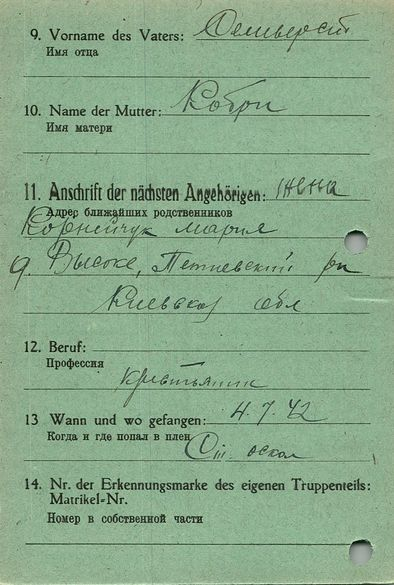 9. Vorname des Vaters: Сельверст
Имя отца
10. Name der Mutter: Кобри
Имя матери
11. Anschrift der nächsten Angehörigen: жена
Адрес ближайших родственников
Корнейчук Мария
д. Высоке, Петиевский рн
Киевской обл
12. Beruf:
Профессия
крестьянин
13 Wann und wo gefangen: 4.7.42
Когда и где попал в плен
Ст. оскол
14. Nr. der Erkennungsmarke des eigenen Truppenteils:
Matrikel-Nr.
Номер в собственной части